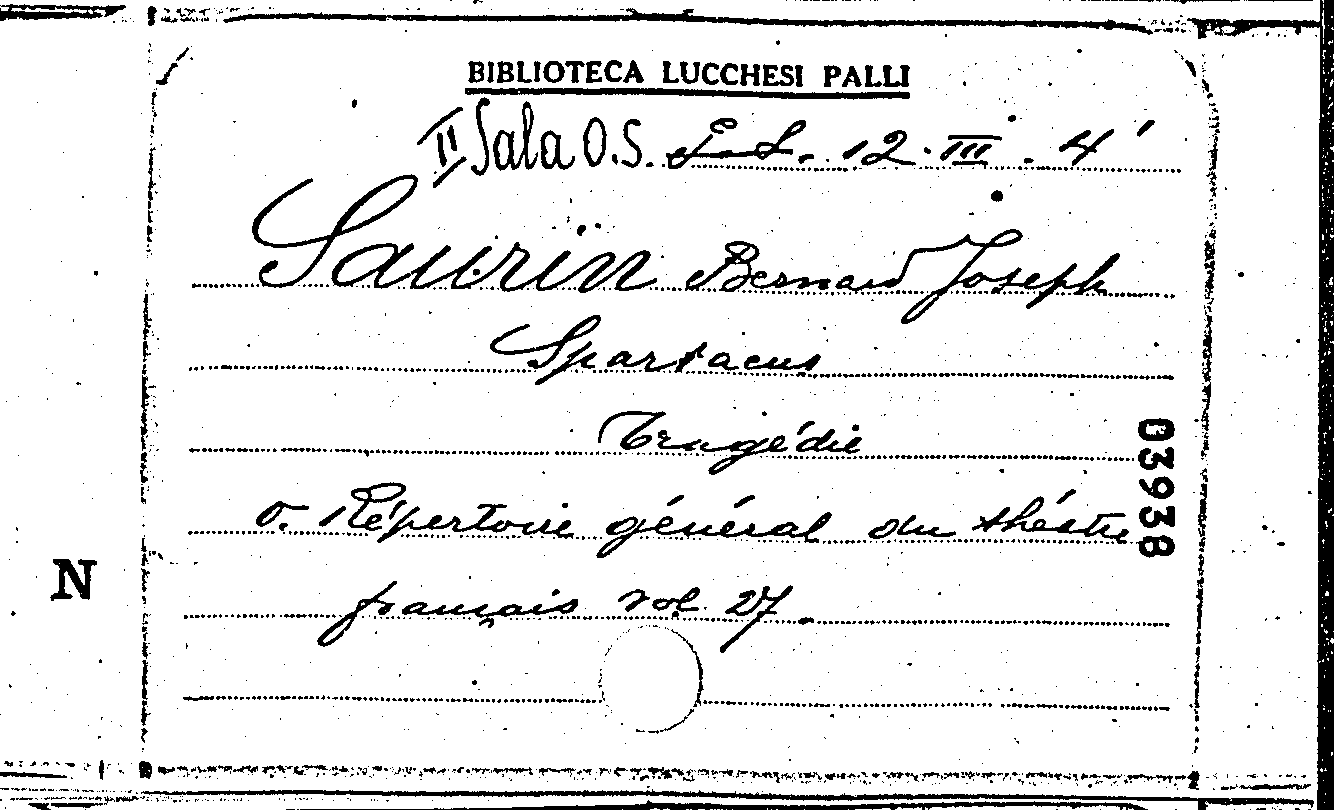 BIBLIOTECA LUCCHESI PALLI
II Sala O.S. 12. III. 4'
Saurin Bernard Joseph
Spartacus
Tragédie
v. Répertoire général du théâtre
français vol. 27.
03938
N